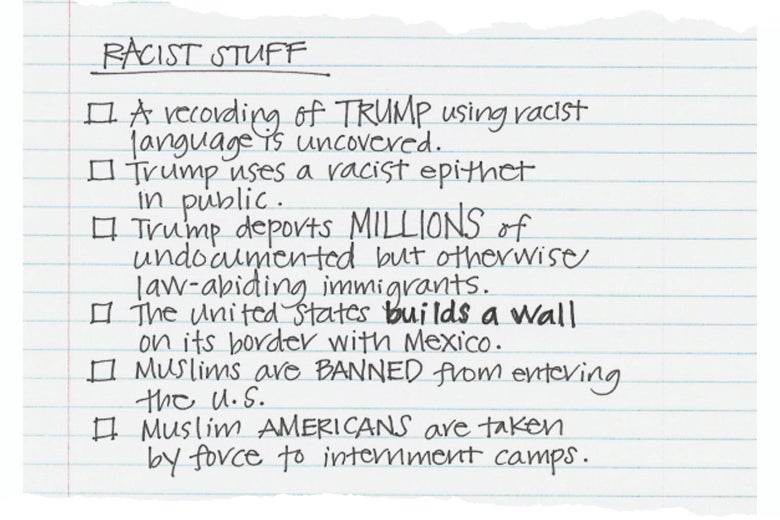 RACIST STUFF
A recording of TRUMP using racist
language is uncovered.
Trump uses a racist epithet
in public.
Trump deports MILLIONS of
undocumented but otherwise
law-abiding immigrants.
The United States builds a wall
on its border with Mexico.
Muslims are BANNED from entering
the U.S.
Muslim AMERICANS are taken
by force to internment camps.